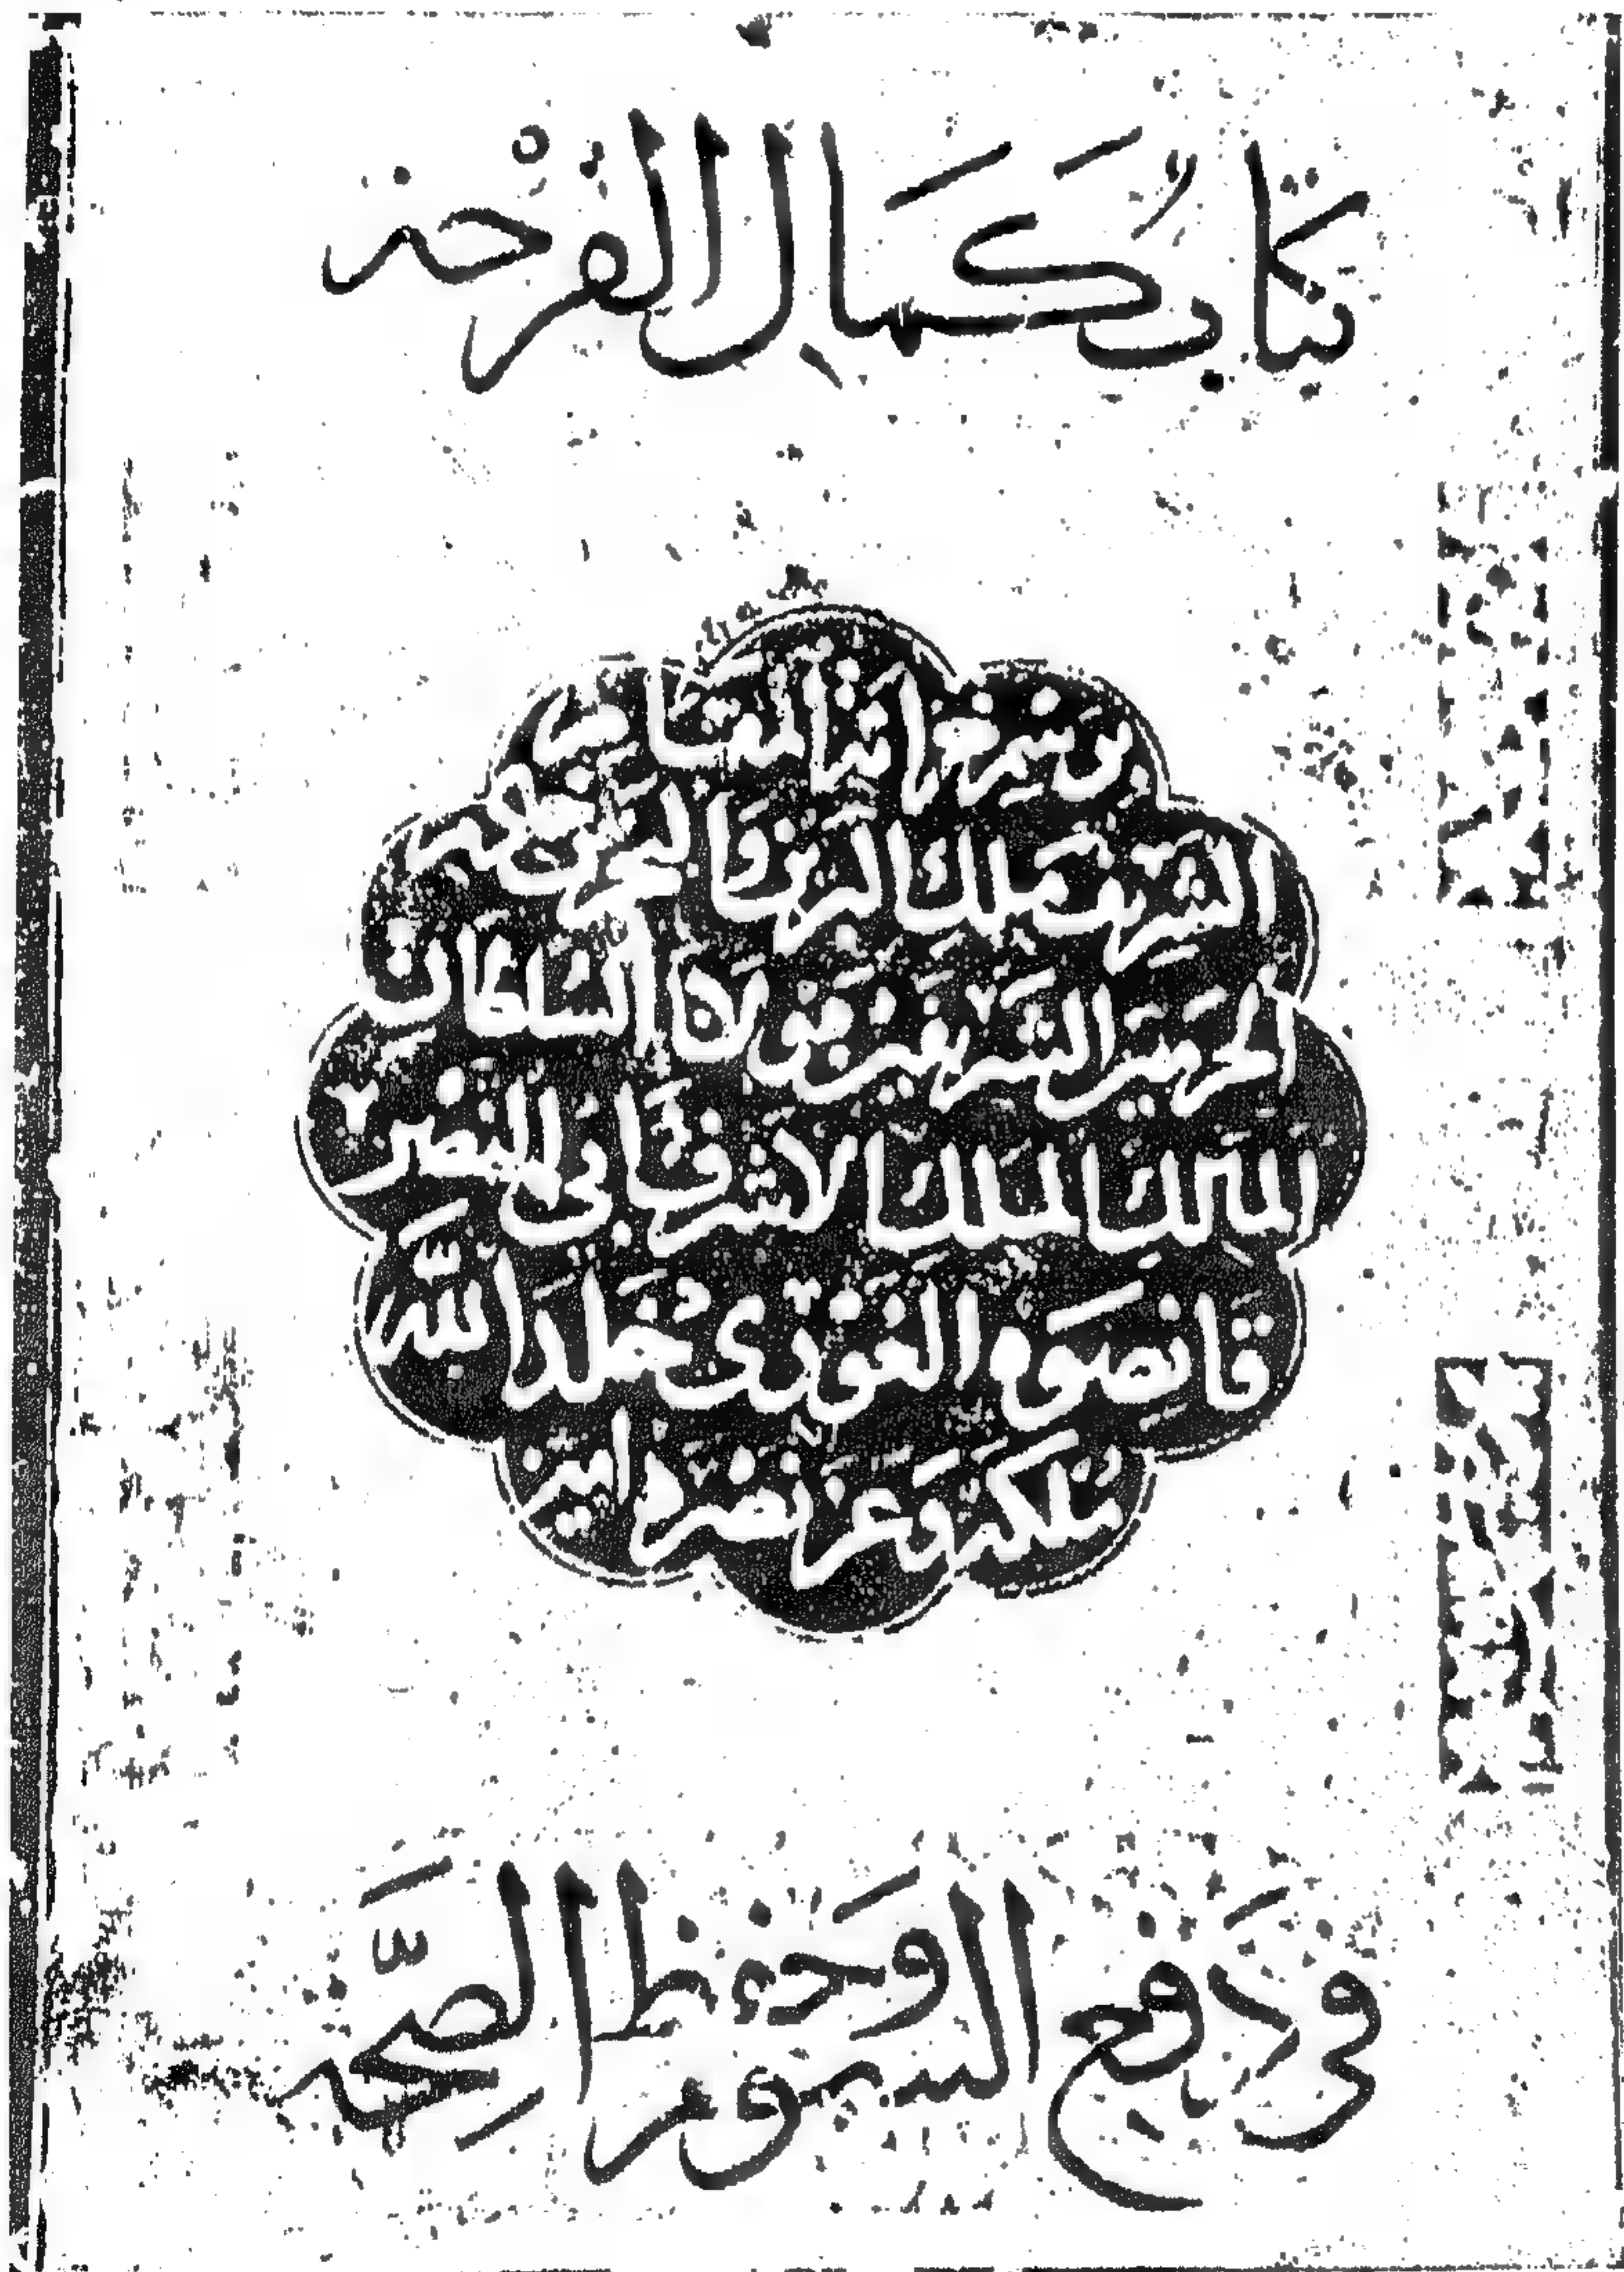 كتاب كمال الفرحة
برسم خزانة المقام
الشريف ملك البرين والبحرين
الحرمين الشريفين مولانا السلطان
المالك الملك الاشرف ابى النصر
قانصوه الغورى خلد الله
ملكه وعز نصره امين
فى دفع السموم وحفظ الصحة